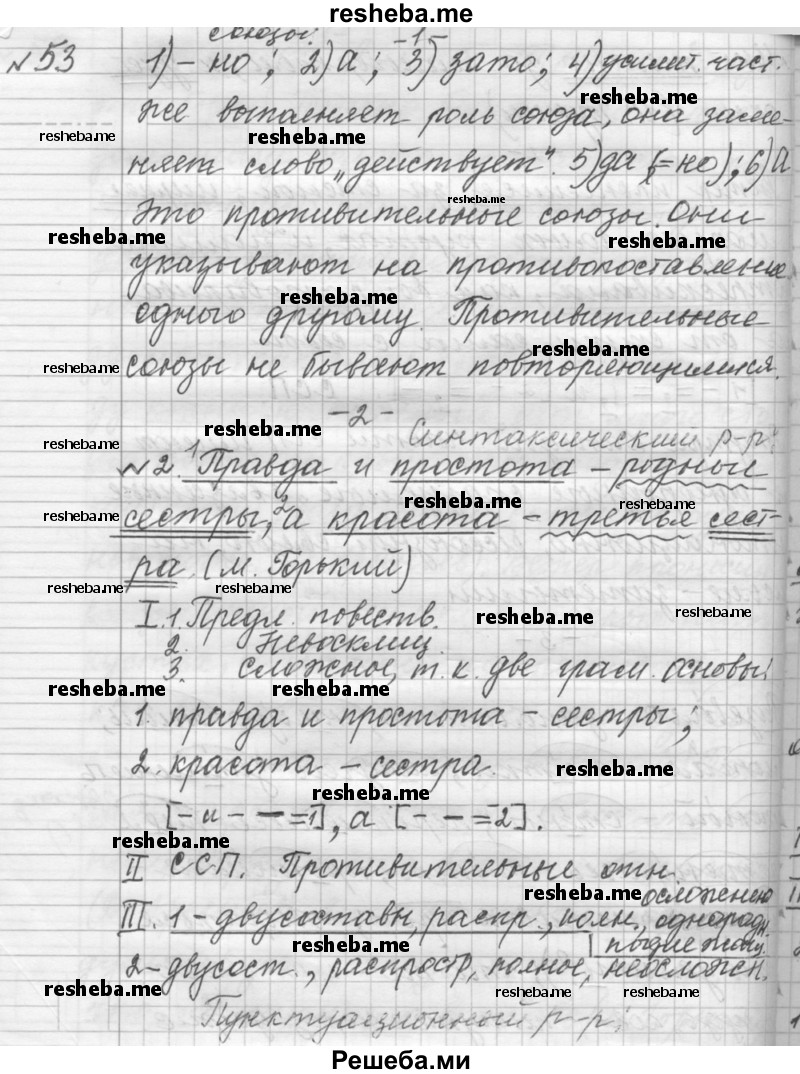 resheba.me
союзы: -1-
№53 1) - но; 2) а; 3) зато; 4) усилит. част.
resheba.me
же выполняет роль союза, она заме-
resheba.me resheba.me
няет слово „действует". 5) да (=но); 6) А
resheba.me
Это противительные союзы. Они
resheba.me resheba.me
указывают на противопоставление
resheba.me
одного другому. Противительные
resheba.me
союзы не бывают повторяющимися.
resheba.me
-2-
resheba.me
Синтаксический р-р:
resheba.me
№2. 1 Правда и простота – родные
resheba.me resheba.me
сестры, 2 а красота – третья сест-
resheba.me
ра. (М. Горький)
resheba.me resheba.me
I. 1. Предл. повеств.
resheba.me resheba.me
2. Невосклиц.
3. сложное, т.к. две грам. основы:
resheba.me resheba.me
1. правда и простота – сестры;
2. красота – сестра.
resheba.me
resheba.me
[- и - — = 1], а [- — = 2].
resheba.me
II ССП. Противительные отн.
resheba.me
осложнено
III. 1 - двусоставн, распр., полн., однородн.
resheba.me
подлежащ.
2 - двусост., распростр, полное, неосложн.
resheba.me resheba.me resheba.me
Пунктуационный р-р:
Решеба.ми